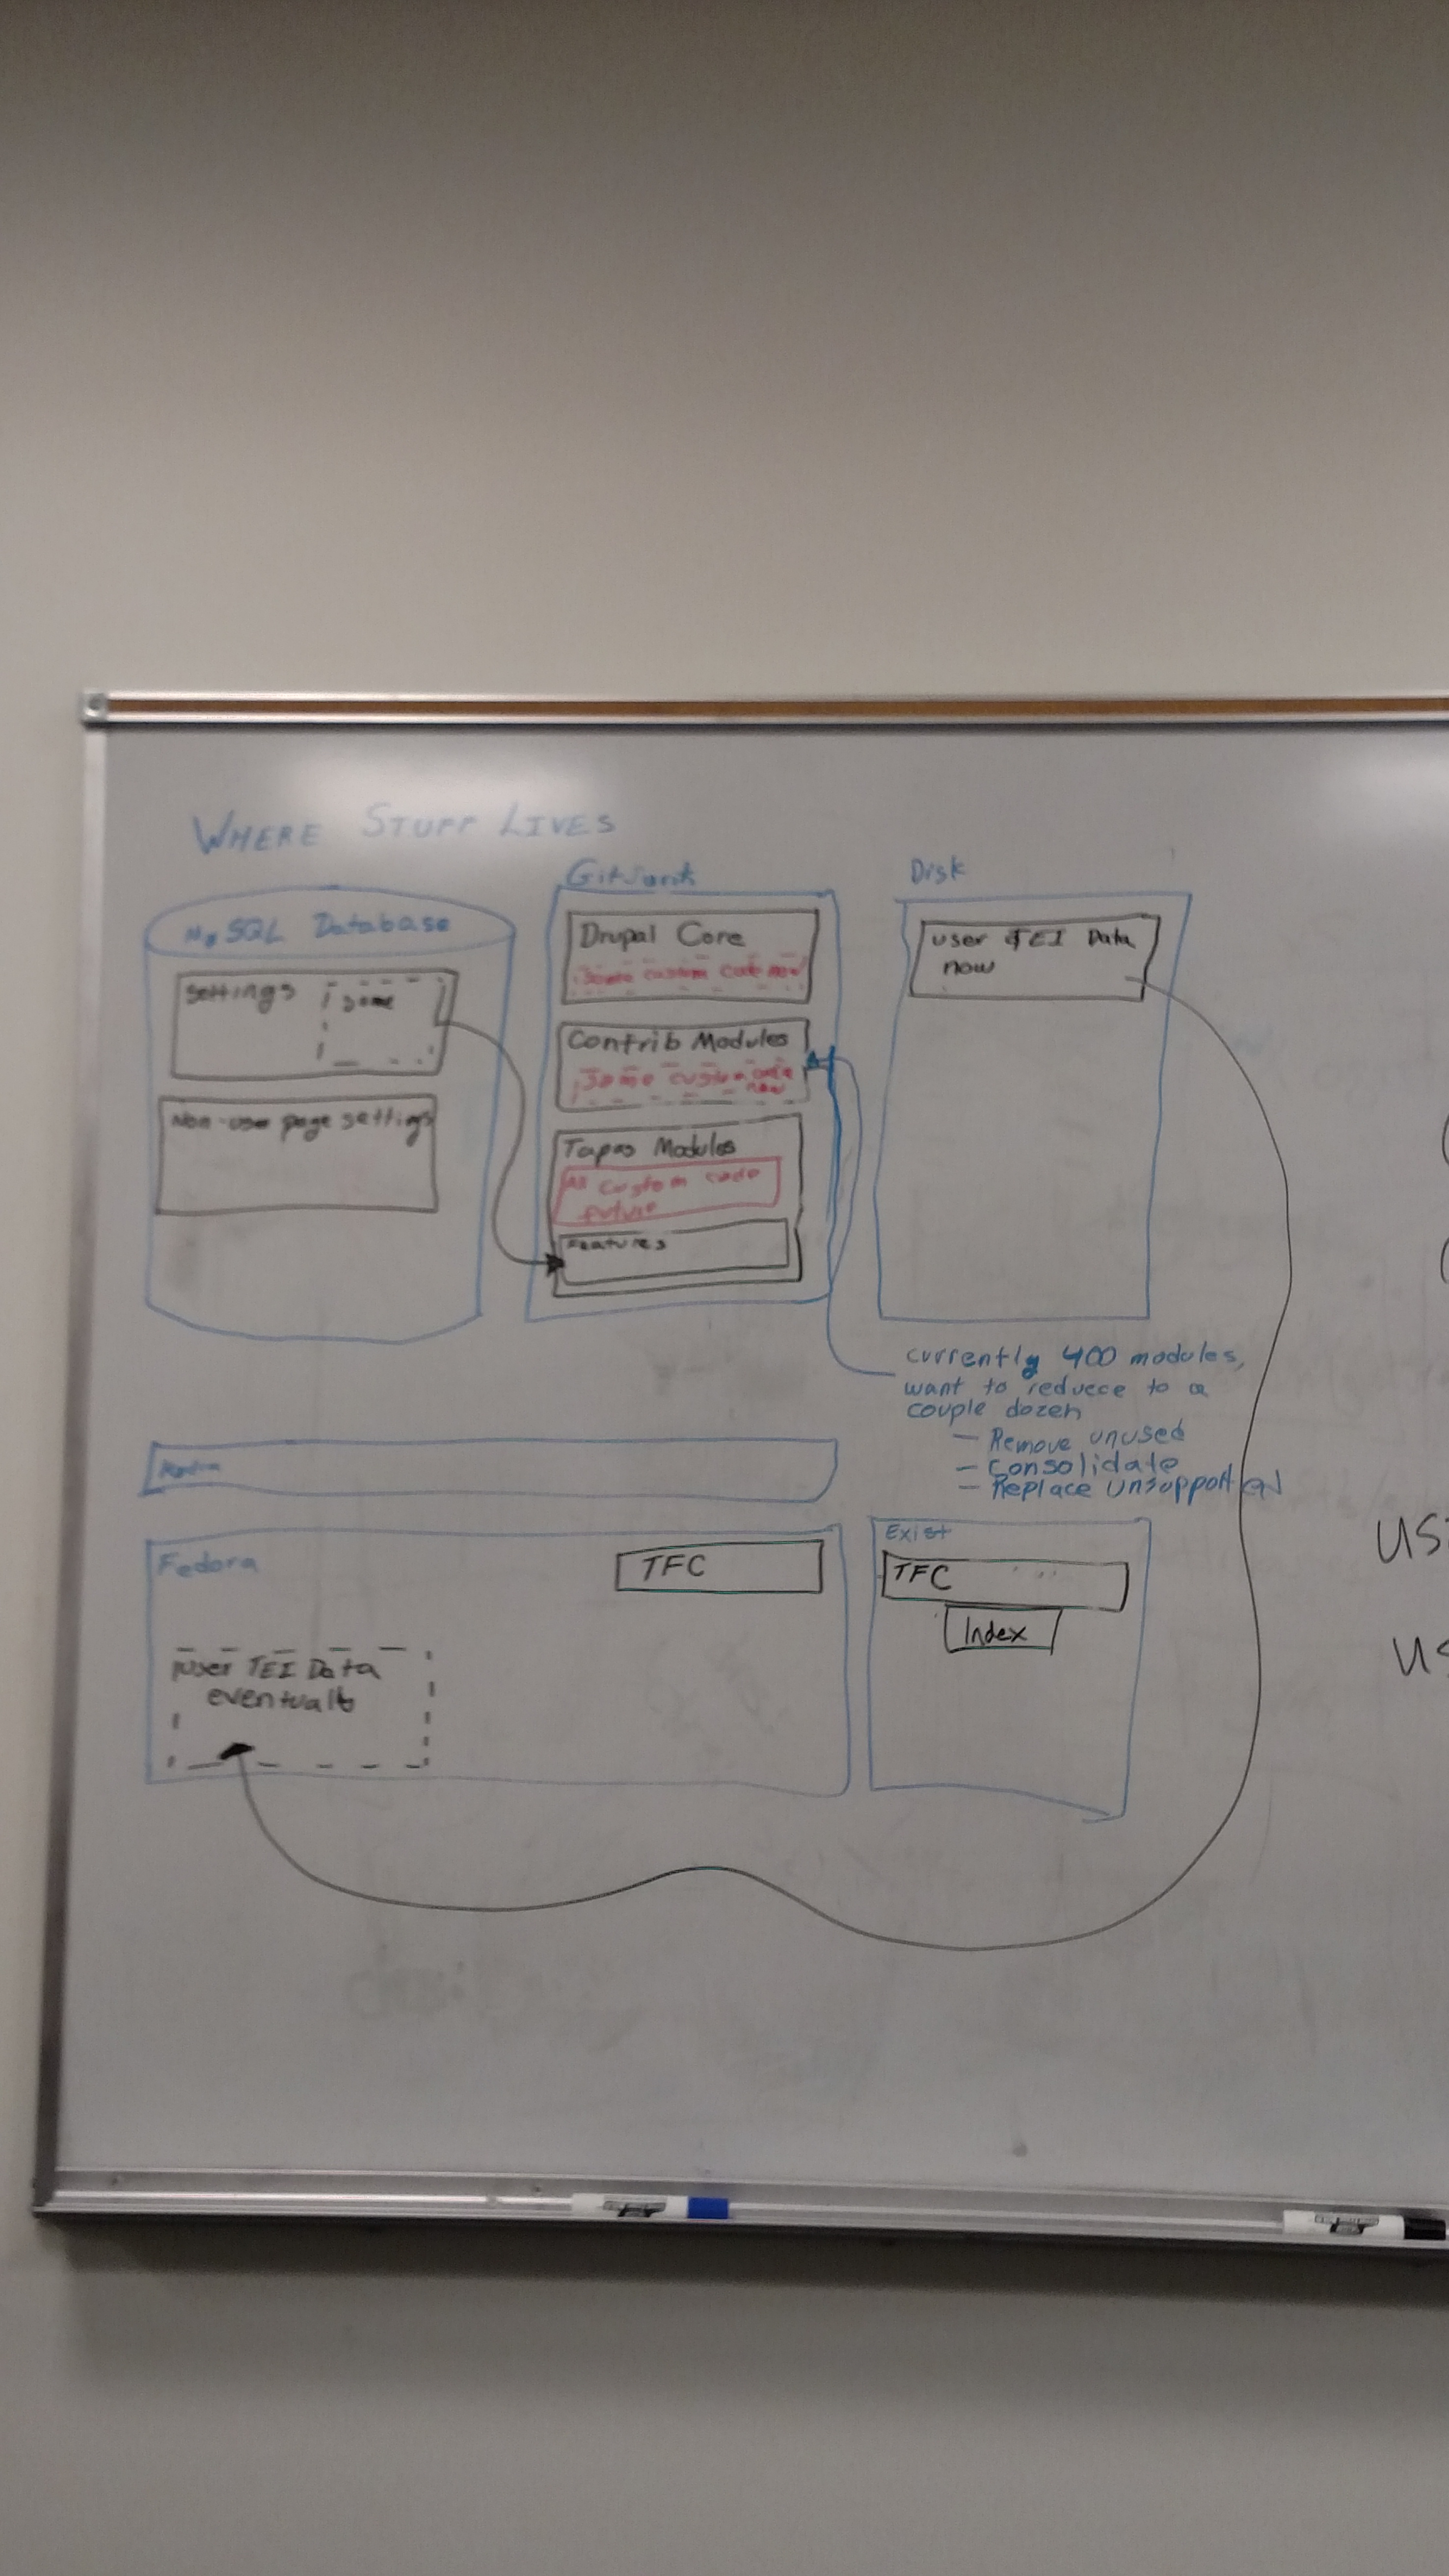 WHERE STUFF LIVES
MySQL Database
Settings
some
Non-user page settings
Drupal Core
some custom code now
Contrib Modules
Some custom code
now
Tapas Modules
All custom code
future
Features
Disk
user TEI Data
now
currently 400 modules,
want to reduece to a
couple dozen
- Remove unused
- Consolidate
- Replace unsupported
Fedora
TFC
user TEI Data
eventually
Exist
TFC
Index